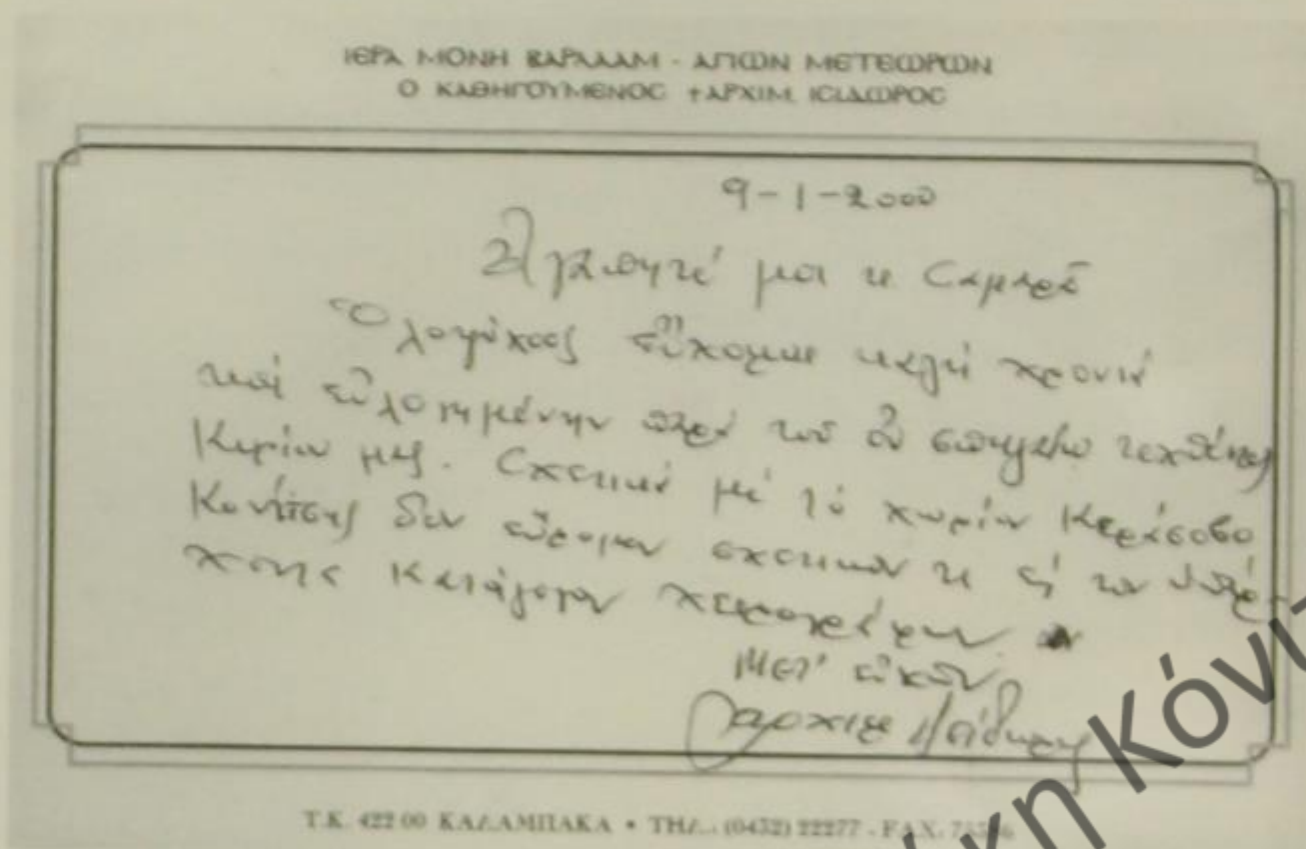 ΙΕΡΑ ΜΟΝΗ ΒΑΡΛΑΑΜ - ΑΓΙΩΝ ΜΕΤΕΩΡΩΝ
Ο ΚΑΘΗΓΟΥΜΕΝΟΣ †ΑΡΧΙΜ. ΙΣΙΔΩΡΟΣ
9-1-2000
Ἀγαπητέ μοι κ. Σαμαρᾶ
Ὁλοψύχως εὔχομαι καλή χρονιά
καί εὐλογημένην παρά τοῦ ἐν σπηλαίῳ τεχθέντος
Κυρίου μας. Σχετικά μέ τό χωρίον Κεράσοβο
Κονίτσης δέν εὕρομεν σχετικόν τι εἰς τον ὑπάρ-
χοντα Κατάλογον χειρογράφων.
Μετ' εὐχῶν
ἀρχιμ. Ἰσίδωρος
Τ.Κ. 422 00 ΚΑΛΑΜΠΑΚΑ • ΤΗΛ.: (0432) 22277 - FAX.
Κόνι